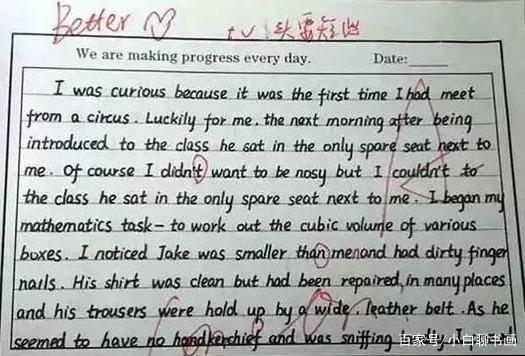 Better
t v 头要短些
We are making progress every day. Date:
I was curious because it was the first time I had meet
from a circus. Luckily for me. the next morning after being
introduced to the class he sat in the only spare seat next to
me. Of course I didn't want to be nosy but I couldn't to
the class he sat in the only spare seat next to me. I began my
mathematics task - to work out the cubic volume of various
boxes. I noticed Jake was smaller than me and had dirty finger
nails. His shirt was clean but had been repaired, in many places
and his trousers were hold up by a wide. leather belt. As he
seemed to have no handkerchief and was sniffing I put
百家号/小白聊书画